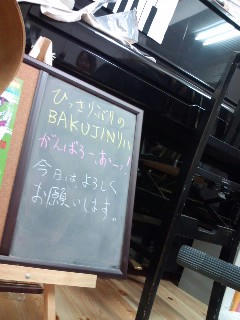 ひっさしぶりの
BAKUJINリハ
がんばろー、おーッ!
今日は、よろしく
お願いします。